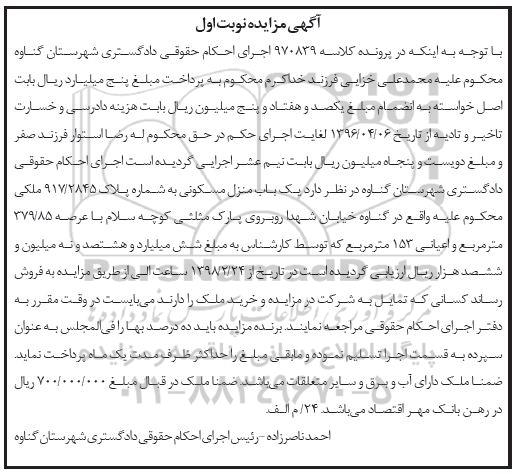 آگهی مزایده نوبت اول
با توجه به اینکه در پرونده کلاسه ۹۷۰۸۳۹ اجرای احکام حقوقی دادگستری شهرستان گناوه
محکوم علیه محمدعلی خزایی فرزند خداکرم محکوم به پرداخت مبلغ پنج میلیارد ریال بابت
اصل خواسته به انضمام مبلغ یکصد و هفتاد و پنج میلیون ریال بابت هزینه دادرسی و خسارت
تاخیر و تادیه از تاریخ ۱۳۹۶/۰۴/۰۶ لغایت اجرای حکم در حق محکوم له رضا استوار فرزند صفر
و مبلغ دویست و پنجاه میلیون ریال بابت نیم عشر اجرایی گردیده است اجرای احکام حقوقی
دادگستری شهرستان گناوه در نظر دارد یک باب منزل مسکونی به شماره پلاک ۹۱۷/۲۸۴۵ ملکی
محکوم علیه واقع در گناوه خیابان شهدا روبروی پارک مثلثی کوچه سلام با عرصه ۳۷۹/۸۵
مترمربع و اعیانی ۱۵۳ مترمربع که توسط کارشناس به مبلغ شش میلیارد و هشتصد و نه میلیون و
ششصد هزار ریال ارزیابی گردیده است در تاریخ از ۱۳۹۸/۲/۲۴ ساعت الی از طریق مزایده به فروش
رساند کسانی که تمایل به شرکت در مزایده و خرید ملک را دارند می‌بایست در وقت مقرر به
دفتر اجرای احکام حقوقی مراجعه نمایند. برنده مزایده باید ده درصد بها را فی‌المجلس به عنوان
سپرده به قسمت اجرا تسلیم نموده و مابقی مبلغ را حداکثر ظرف مدت یک ماه پرداخت نماید.
ضمنا ملک دارای آب و برق و سایر متعلقات می‌باشد. ضمنا ملک در قبال مبلغ ۷۰۰/۰۰۰/۰۰۰ ریال
در رهن بانک مهر اقتصاد می‌باشد. ۲۴/ م الف.
احمد ناصرزاده – رئیس اجرای احکام حقوقی دادگستری شهرستان گناوه
ParsNamadData
پایگاه اطلاع رسانی مناقصه و مزایده
۰۲۱-۸۸۳۴۹۶۷۰-۵